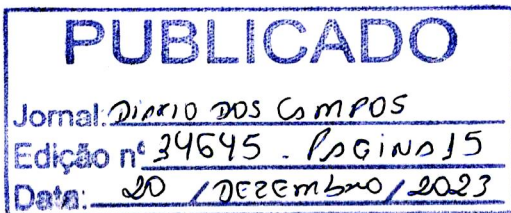 PUBLICADO
Jornal: DIARIO DOS CAMPOS
Edição nº 34645 - PAGINA 15
Data: 20 / DEZEMBRO / 2023